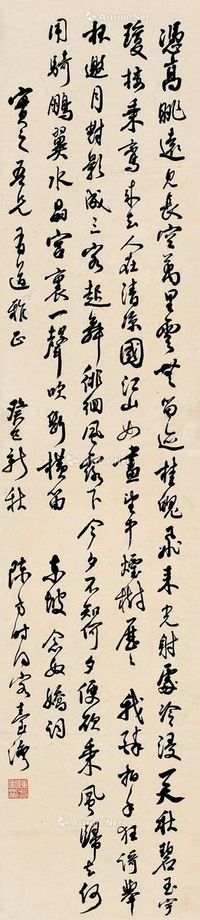 憑高眺遠見長空萬里雲無留迹桂魄飛來光射處冷浸一天秋碧玉宇
瓊樓乘鸞來去人在清涼國江山如畫望中煙樹歷々我醉拍手狂歌舉
杯邀月對影成三客起舞徘徊風露下今夕不知何夕便欲乘風歸去何
用騎鵬翼水晶宮裏一聲吹斷橫笛 東坡念奴嬌詞
寶之吾兄有道雅正 癸巳新秋 陳方時同客臺灣